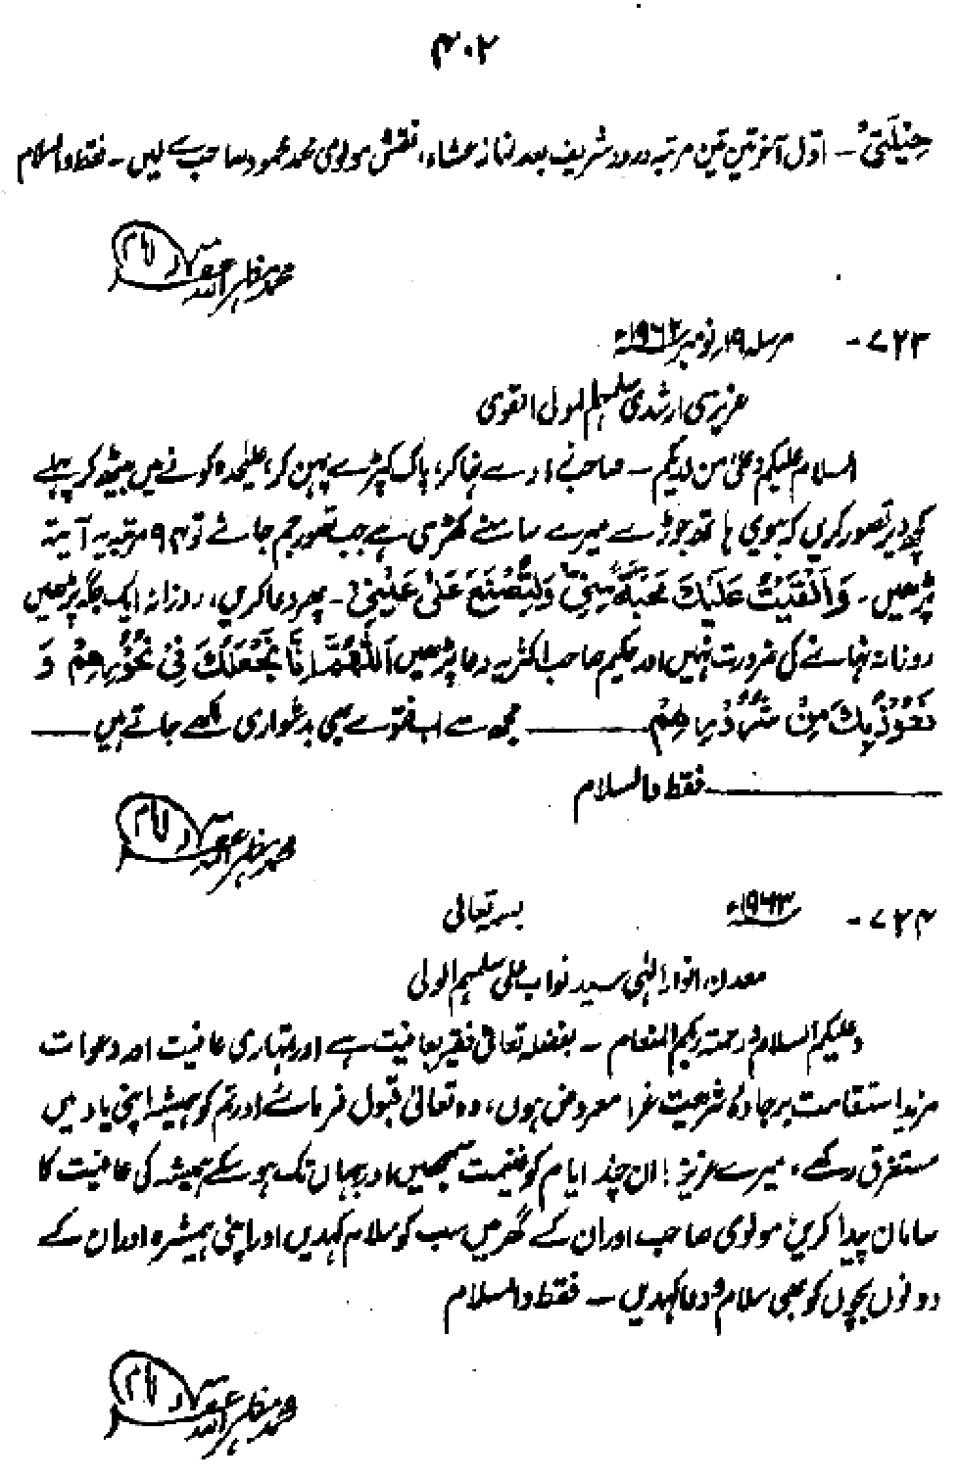 ۴۰۲
حِیْلَتِیْ ۔ اوّل آخر تین تین مرتبہ درود شریف بعد نماز عشاء، نقش مولوی محمد محمود صاحب سے لیں ۔ فقط والسلام
محمد مظہر اللہ
۷۲۳ - مرسلہ ۱۹ر نومبر ۱۹۶۲ء
عزیزی ارشدی سلمہم المولی القوی
السلام علیکم وعلیٰ من لدیکم ۔ صاحب نہا کر، پاک کپڑے پہن کر، علیٰحدہ کونے میں بیٹھ کر پہلے
کچھ دیر تصور کریں کہ بیوی ہاتھ جوڑے میرے سامنے کھڑی ہے جب تصور جم جائے تو ۴۹ مرتبہ یہ آیۃ
پڑھیں ۔ وَاَلْقَیْتُ عَلَیْكَ مَحَبَّةً مِّنِّیْ وَلِتُصْنَعَ عَلٰی عَیْنِیْ ۔ پھر دعا کریں، روزانہ ایک جگہ پڑھیں
روزانہ نہانے کی ضرورت نہیں اور حکیم صاحب اکثر یہ دعا پڑھیں اَللّٰهُمَّ اِنَّا نَجْعَلُكَ فِیْ نُحُوْرِهِمْ وَ
نَعُوْذُ بِكَ مِنْ شُرُوْرِهِمْ ــــــ مجھ سے اب فتوے بھی بدشواری لکھے جاتے ہیں ــــــ
ــــــ فقط والسلام
محمد مظہر اللہ
۷۲۴ - ۱۹۶۳ء بسمہ تعالیٰ
معدن انوار الٰہی سید نواب علی سلمہم الولی
وعلیکم السلام ورحمتہ ربکم المنعام ۔ بفضلہ تعالیٰ فقیر بعافیت ہے اور تمہاری عافیت اور دعوات
مزید استقامت بر جادۂ شریعت غرا معروض ہوں، وہ تعالیٰ قبول فرمائے اور تم کو ہمیشہ اپنی یاد میں
مستغرق رکھے، میرے عزیز! ان چند ایام کو غنیمت سمجھیں اور جہاں تک ہو سکے ہمیشہ کی عافیت کا
سامان پیدا کریں مولوی صاحب اور ان کے گھر میں سب کو سلام کہدیں اور اپنی ہمشیرہ اور ان کے
دونوں بچوں کو بھی سلام و دعا کہدیں ۔ فقط والسلام
محمد مظہر اللہ